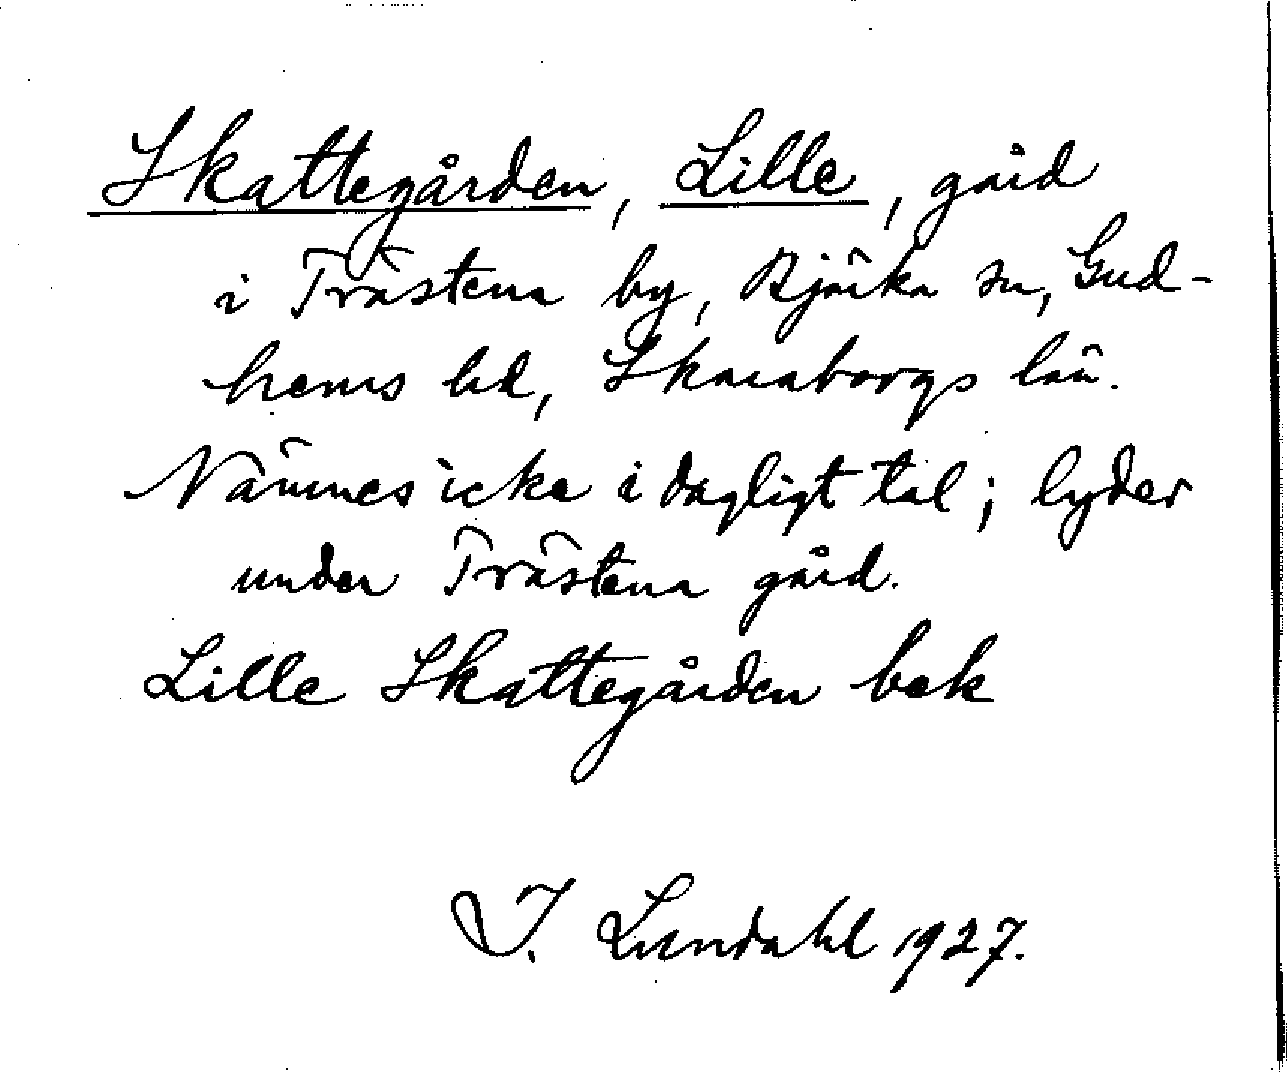 Skattegården, Lille, gård
i Trästena by, Bjärka sn, Gud-
hems hd, Skaraborgs län.
Nämnes icke i dagligt tal; lyder
under Trästena gård.
Lille Skattegården bok
I. Lundahl 1927.